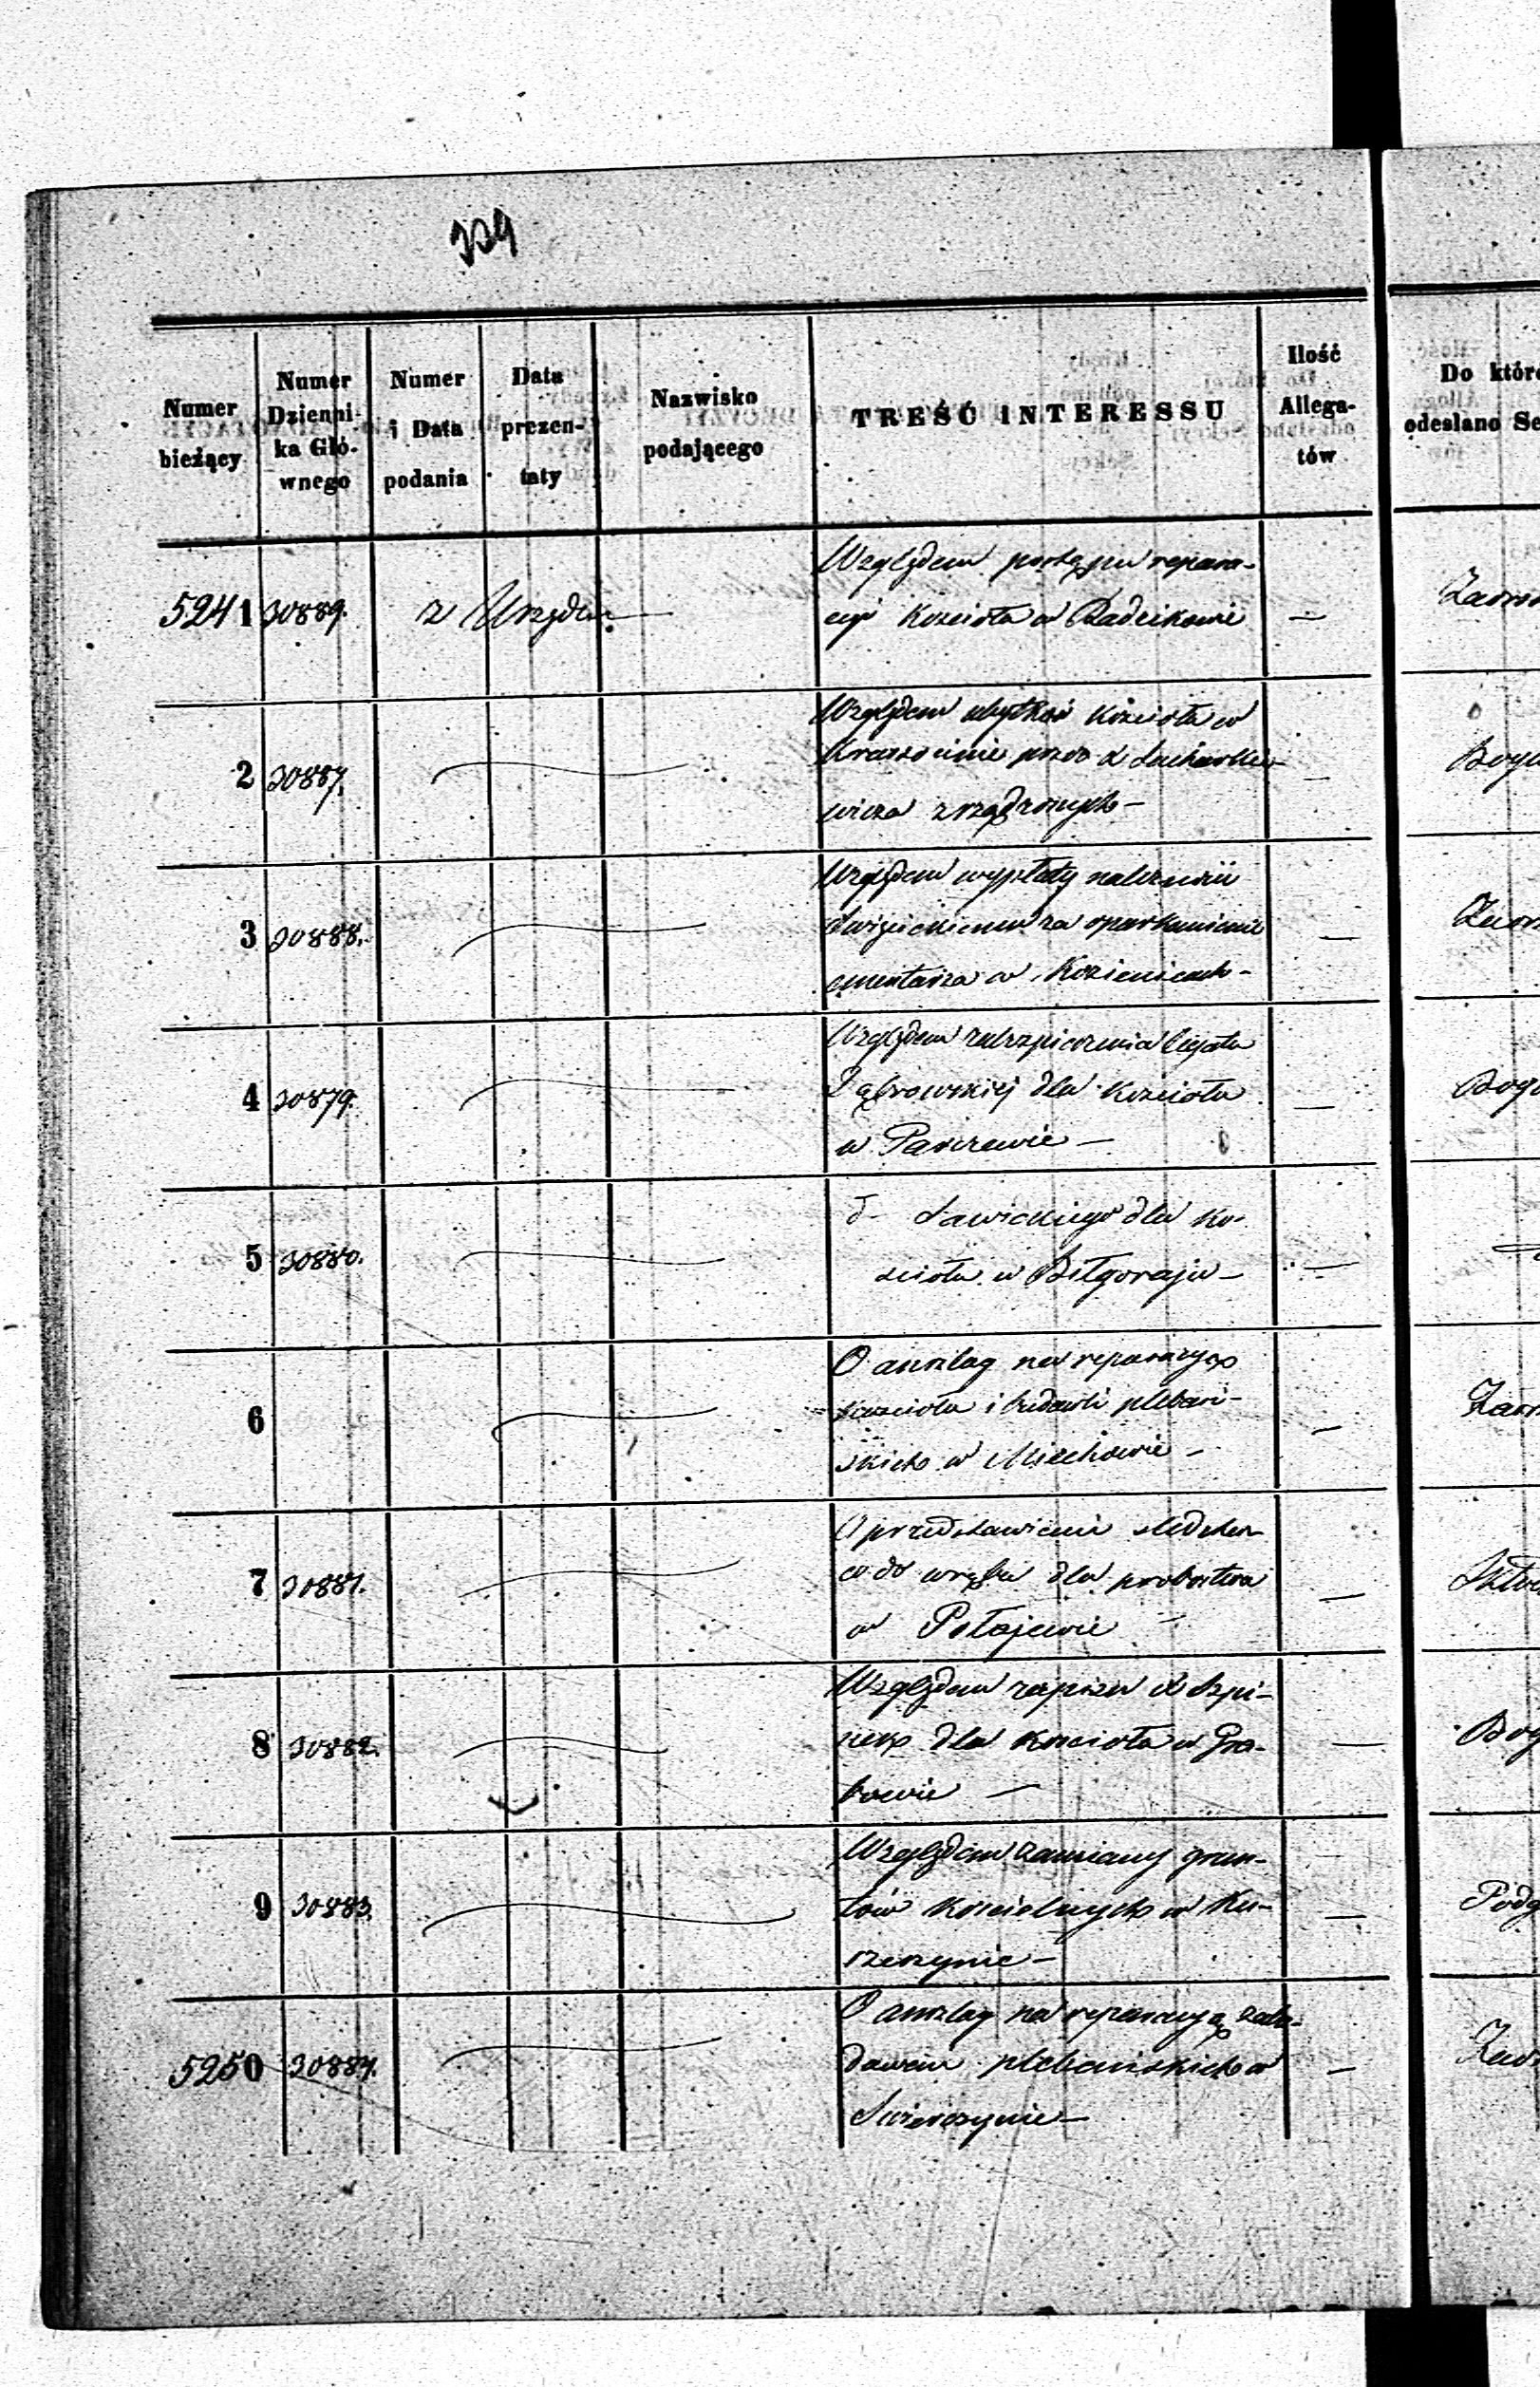 339
Numer
bieżący
Numer
Dzienni-
ka Głó-
wnego
Numer
i Data
podania
Data
prezen-
taty
Nazwisko
podającego
TREŚĆ INTERESSU
Ilość
Allega-
tów
Do które
odesłano Se
5241 30889. z Urzędu
Względem postępu repara-
cyi Kościoła w Radzikowie —
2 30887.
Względem ubytków Kościoła w
Krasocinie przez X
wicza zrządzonych —
3 30888.
Względem wypłaty
za oparkanienie
cmentarza w Kozienicach —
4 30879.
Względem zabezpieczenia legatu
Dąbrowskiej dla Kościoła
w Parczewie —
5 30880.
d— Sawickiego dla Ko-
ścioła w Biłgoraju —
6
O anszlag na reparacyą
kościoła i budowli plebań-
skich w Miechowie —
7 30881.
O przedstawienie
co do wrębu dla probostwa
w Połajewie —
8 30882.
Względem zapisu X Szpi-
dla Kościoła w Gra-
bowie —
9 30883.
Względem zamiany grun-
tów Kościelnych w Ku-
czynie —
5250 30884.
O anszlag na reparacyą zabu-
dowań plebańskich w
Świerczynie —